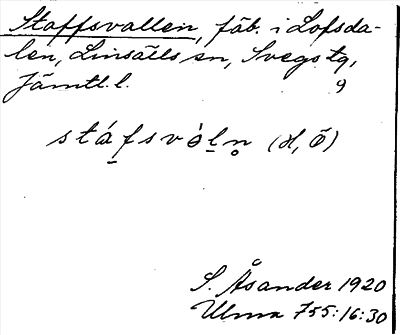 Staffsvallen, fäb. i Lofsda-
len, Linsälls sn, Svegs tg,
Jämtl. l. 9
stá̱fsvòl̲n̥ (H, Ö)
S. Åsander 1920
Ulma 755:16:30